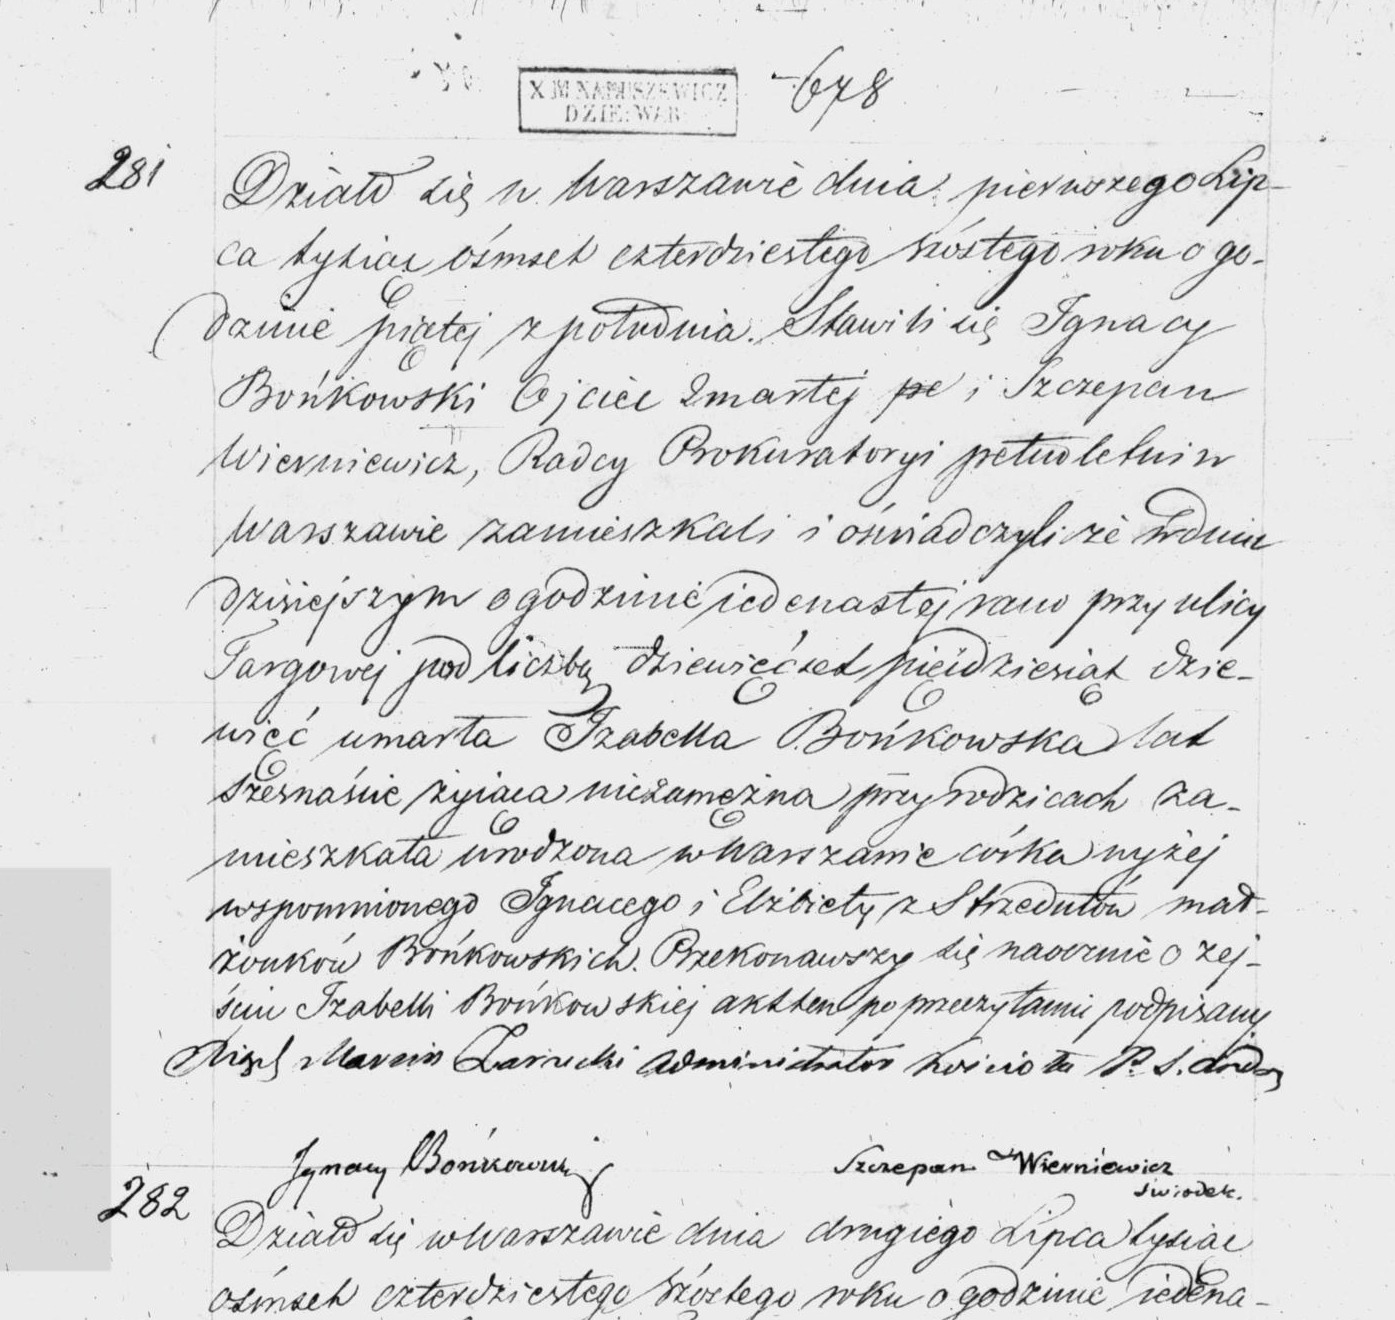 678
X M NARUSZEWICZ
DZIE: WAR:
281
Działo się w Warszawie dnia pierwszego Lip-
ca tysiąc óśmset czterdziestego szóstego roku o go-
dzinie piątej z południa. Stawili się Ignacy
Bońkowski Ojciec Zmarłej i Szczepan
Wierniewicz, Radcy Prokuratoryi pełnoletni w
Warszawie zamieszkali i oświadczyli że w dniu
dzisiejszym o godzinie iedenastej rano przy ulicy
Targowej pod liczbą dziewięćset pięćdziesiąt dzie-
więć umarła Izabella Bońkowska lat
szesnaście żyiąca niezamężna przy rodzicach za-
mieszkała urodzona w Warszawie córka wyżej
wspomnionego Ignacego i Elżbiety z Strzedulów mał-
żonków Bońkowskich. Przekonawszy się naocznie o zej-
ściu Izabelli Bońkowskiej akt ten po przeczytaniu podpisany
Marcin Administrator kościoła P. S. Andrz
Ignacy Bońkowski
Szczepan Wierniewicz
świadek.
282
Działo się w Warszawie dnia drugiego Lipca tysiąc
óśmset czterdziestego szóstego roku o godzinie iedena-